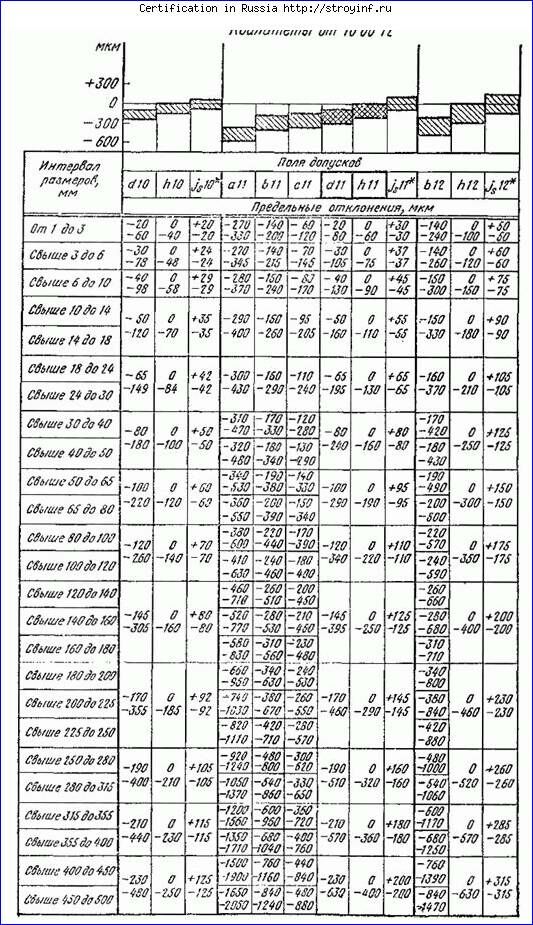 Certification in Russia http://stroyinf.ru
Квалитеты от 10 до 12
мкм
+300
0
-300
-600
Интервал размеров, мм
Поля допусков
d10 h10 js10* a11 b11 c11 d11 h11 js11* b12 h12 js12*
Предельные отклонения, мкм
От 1 до 3
-20 0 +20 -270 -140 -60 -20 0 +30 -140 0 +50
-60 -40 -20 -330 -200 -120 -80 -60 -30 -240 -100 -50
Свыше 3 до 6
-30 0 +24 -270 -140 -70 -30 0 +37 -140 0 +60
-78 -48 -24 -345 -215 -145 -105 -75 -37 -260 -120 -60
Свыше 6 до 10
-40 0 +29 -280 -150 -80 -40 0 +45 -150 0 +75
-98 -58 -29 -370 -240 -170 -130 -90 -45 -300 -150 -75
Свыше 10 до 14
-50 0 +35 -290 -150 -95 -50 0 +55 -150 0 +90
-120 -70 -35 -400 -260 -205 -160 -110 -55 -330 -180 -90
Свыше 14 до 18
Свыше 18 до 24
-65 0 +42 -300 -160 -110 -65 0 +65 -160 0 +105
-149 -84 -42 -430 -290 -240 -195 -130 -65 -370 -210 -105
Свыше 24 до 30
Свыше 30 до 40
-310 -170 -120 -170
-470 -330 -280 -420
-80 0 +50 -80 0 +80 0 +125
-180 -100 -50 -240 -160 -80 -250 -125
Свыше 40 до 50
-320 -180 -130 -180
-480 -340 -290 -430
Свыше 50 до 65
-340 -190 -140 -190
-530 -380 -330 -490
-100 0 +60 -100 0 +95 0 +150
-220 -120 -60 -290 -190 -95 -300 -150
Свыше 65 до 80
-360 -200 -150 -200
-550 -390 -340 -500
Свыше 80 до 100
-380 -220 -170 -220
-600 -440 -390 -570
-120 0 +70 -120 0 +110 0 +175
-260 -140 -70 -340 -220 -110 -350 -175
Свыше 100 до 120
-410 -240 -180 -240
-630 -460 -400 -590
Свыше 120 до 140
-460 -260 -200 -260
-710 -510 -450 -660
Свыше 140 до 160
-145 0 +80 -520 -280 -210 -145 0 +125 -280 0 +200
-305 -160 -80 -770 -530 -460 -395 -250 -125 -680 -400 -200
Свыше 160 до 180
-580 -310 -230 -310
-830 -560 -480 -710
Свыше 180 до 200
-660 -340 -240 -340
-950 -630 -530 -800
Свыше 200 до 225
-170 0 +92 -740 -380 -260 -170 0 +145 -380 0 +230
-355 -185 -92 -1030 -670 -550 -460 -290 -145 -840 -460 -230
Свыше 225 до 250
-820 -420 -280 -420
-1110 -710 -570 -880
Свыше 250 до 280
-920 -480 -300 -480
-1240 -800 -620 -1000
-190 0 +105 -190 0 +160 0 +260
-400 -210 -105 -510 -320 -160 -520 -260
Свыше 280 до 315
-1050 -540 -330 -540
-1370 -860 -650 -1060
Свыше 315 до 355
-1200 -600 -360 -600
-1560 -960 -720 -1170
-210 0 +115 -210 0 +180 0 +285
-440 -230 -115 -570 -360 -180 -570 -285
Свыше 355 до 400
-1350 -680 -400 -680
-1710 -1040 -760 -1250
Свыше 400 до 450
-1500 -760 -440 -760
-1900 -1160 -840 -1390
-230 0 +125 -230 0 +200 0 +315
-480 -250 -125 -630 -400 -200 -630 -315
Свыше 450 до 500
-1650 -840 -480 -840
-2050 -1240 -880 -1470